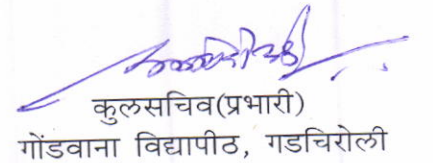 कुलसचिव(प्रभारी)
गोंडवाना विद्यापीठ, गडचिरोली